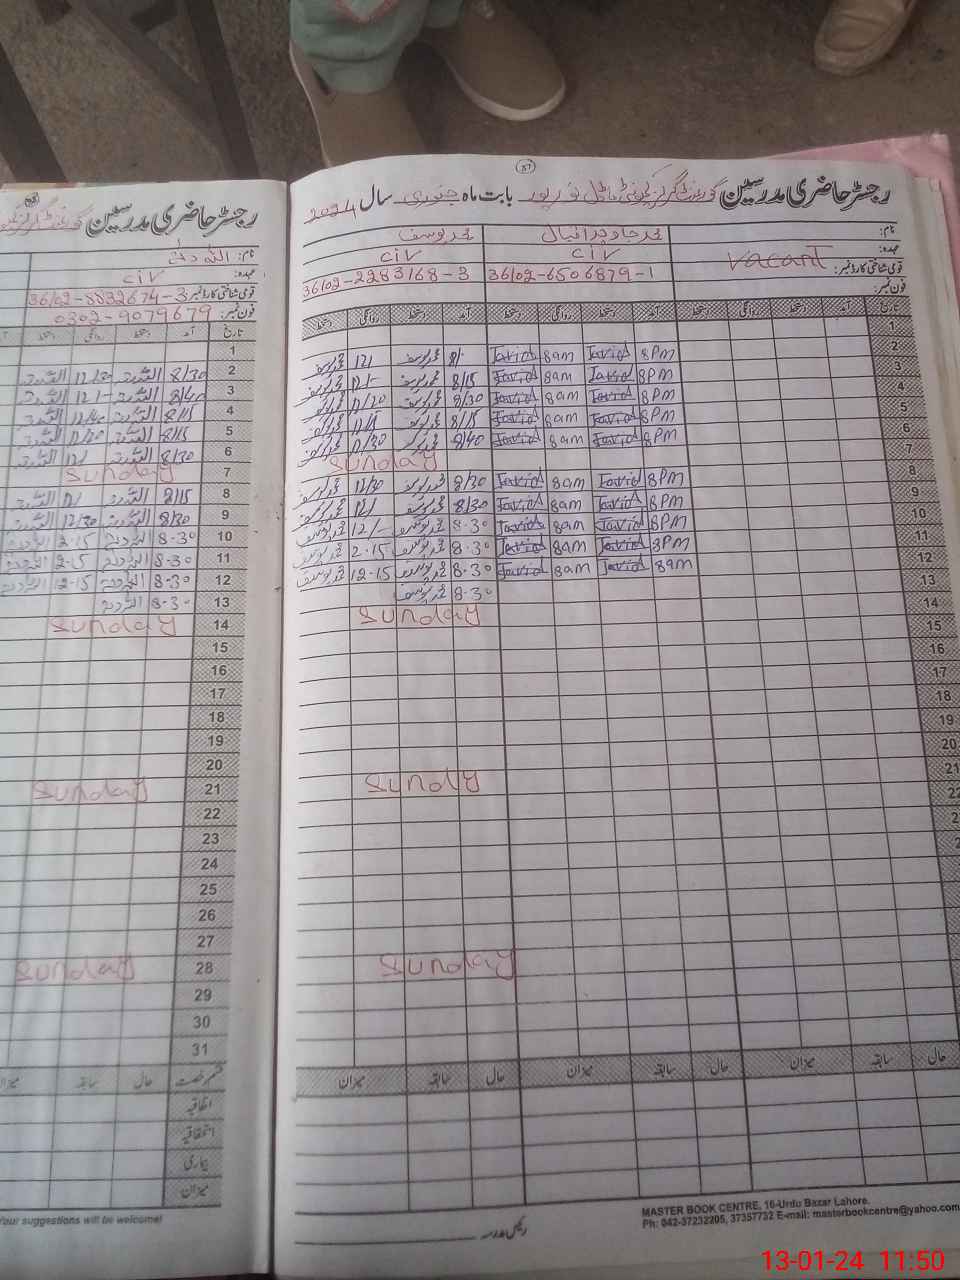 87
رجسٹر حاضری مدرسین گورنمنٹ گرلز کمیونٹی ماڈل نور پور بابت ماہ جنوری سال 2024
نام: محمد جاوید اقبال محمد یوسف
عہدہ: Vacant CIV CIV
قومی شناختی کارڈ نمبر: 36102-6506879-1 36102-2283168-3
فون نمبر:
تاریخ آمد دستخط روانگی دستخط آمد دستخط روانگی دستخط آمد دستخط روانگی دستخط
1
2 8PM Javid 8am Javid 8/- محمد یوسف 12/ محمد یوسف
3 8PM Javid 8am Javid 8/15 محمد یوسف 12/- محمد یوسف
4 8PM Javid 8am Javid 8/30 محمد یوسف 12/20 محمد یوسف
5 8PM Javid 8am Javid 8/15 محمد یوسف 12/15 محمد یوسف
6 8PM Javid 8am Javid 8/40 محمد یوسف 12/30 محمد یوسف
7 Sunday
8 8PM Javid 8am Javid 8/30 محمد یوسف 12/30 محمد یوسف
9 8PM Javid 8am Javid 8/30 محمد یوسف 12/ محمد یوسف
10 8PM Javid 8am Javid 8-30 محمد یوسف 12/- محمد یوسف
11 8PM Javid 8am Javid 8-30 محمد یوسف 2-15 محمد یوسف
12 8am Javid 8am Javid 8-30 محمد یوسف 12-15 محمد یوسف
13 8-30 محمد یوسف
14 Sunday
15
16
17
18
19
20
21 Sundy
22
Sunday
حال سابقہ میزان حال سابقہ میزان حال سابقہ میزان
رئیس مدرسہ
MASTER BOOK CENTRE, 16-Urdu Bazar Lahore.
Ph: 042-37232205, 37357732 E-mail: masterbookcentre@yahoo.com
رجسٹر حاضری مدرسین گورنمنٹ گرلز
نام: اللہ دتہ
عہدہ: CIV
قومی شناختی کارڈ نمبر: 36102-8832674-3
فون نمبر: 0302-9079679
تاریخ آمد دستخط روانگی دستخط
1
2 8/30 اللہ دتہ 12/30 اللہ دتہ
3 8/40 اللہ دتہ 12/- اللہ دتہ
4 8/15 اللہ دتہ 12/40 اللہ دتہ
5 8/15 اللہ دتہ 12/20 اللہ دتہ
6 8/30 اللہ دتہ 12/ اللہ دتہ
7 Sunday
8 8/15 اللہ دتہ 12/ اللہ دتہ
9 8/30 اللہ دتہ 12/30 اللہ دتہ
10 8-30 اللہ دتہ 2-15 اللہ دتہ
11 8-30 اللہ دتہ 12-15 اللہ دتہ
12 8-30 اللہ دتہ 12-15 اللہ دتہ
13 8-30 اللہ دتہ
14 Sunday
15
16
17
18
19
20
21 Sunday
22
23
24
25
26
27
28 Sunday
29
30
31
قسم رخصت حال سابقہ میزان
اتفاقیہ
استحقاقیہ
بیماری
میزان
Your suggestions will be welcome!
13-01-24 11:50